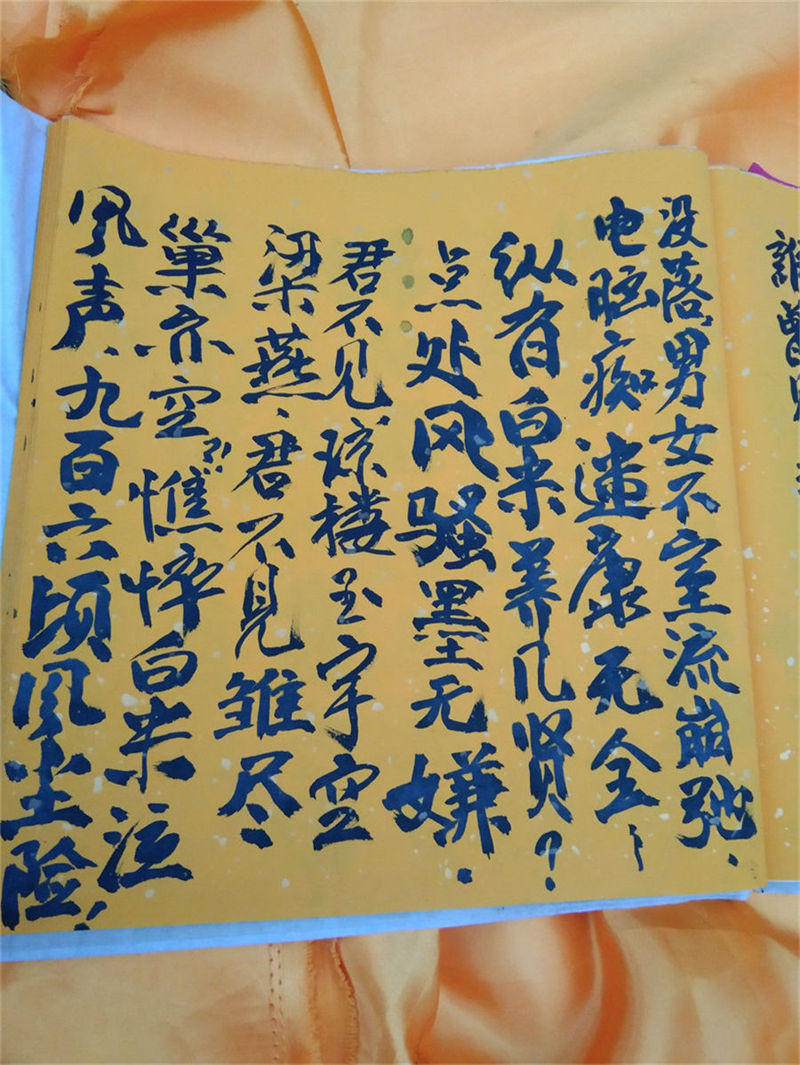 誰曾見
没落男女不室流崩弛、
电脑痴迷康无全、
纵有白米养几贤？
点处风骚墨无嫌.
君不见琼楼玉宇空
梁燕、君不见雏尽
巢亦空?!憔悴白米泣
风声、九百六顷风尘险!